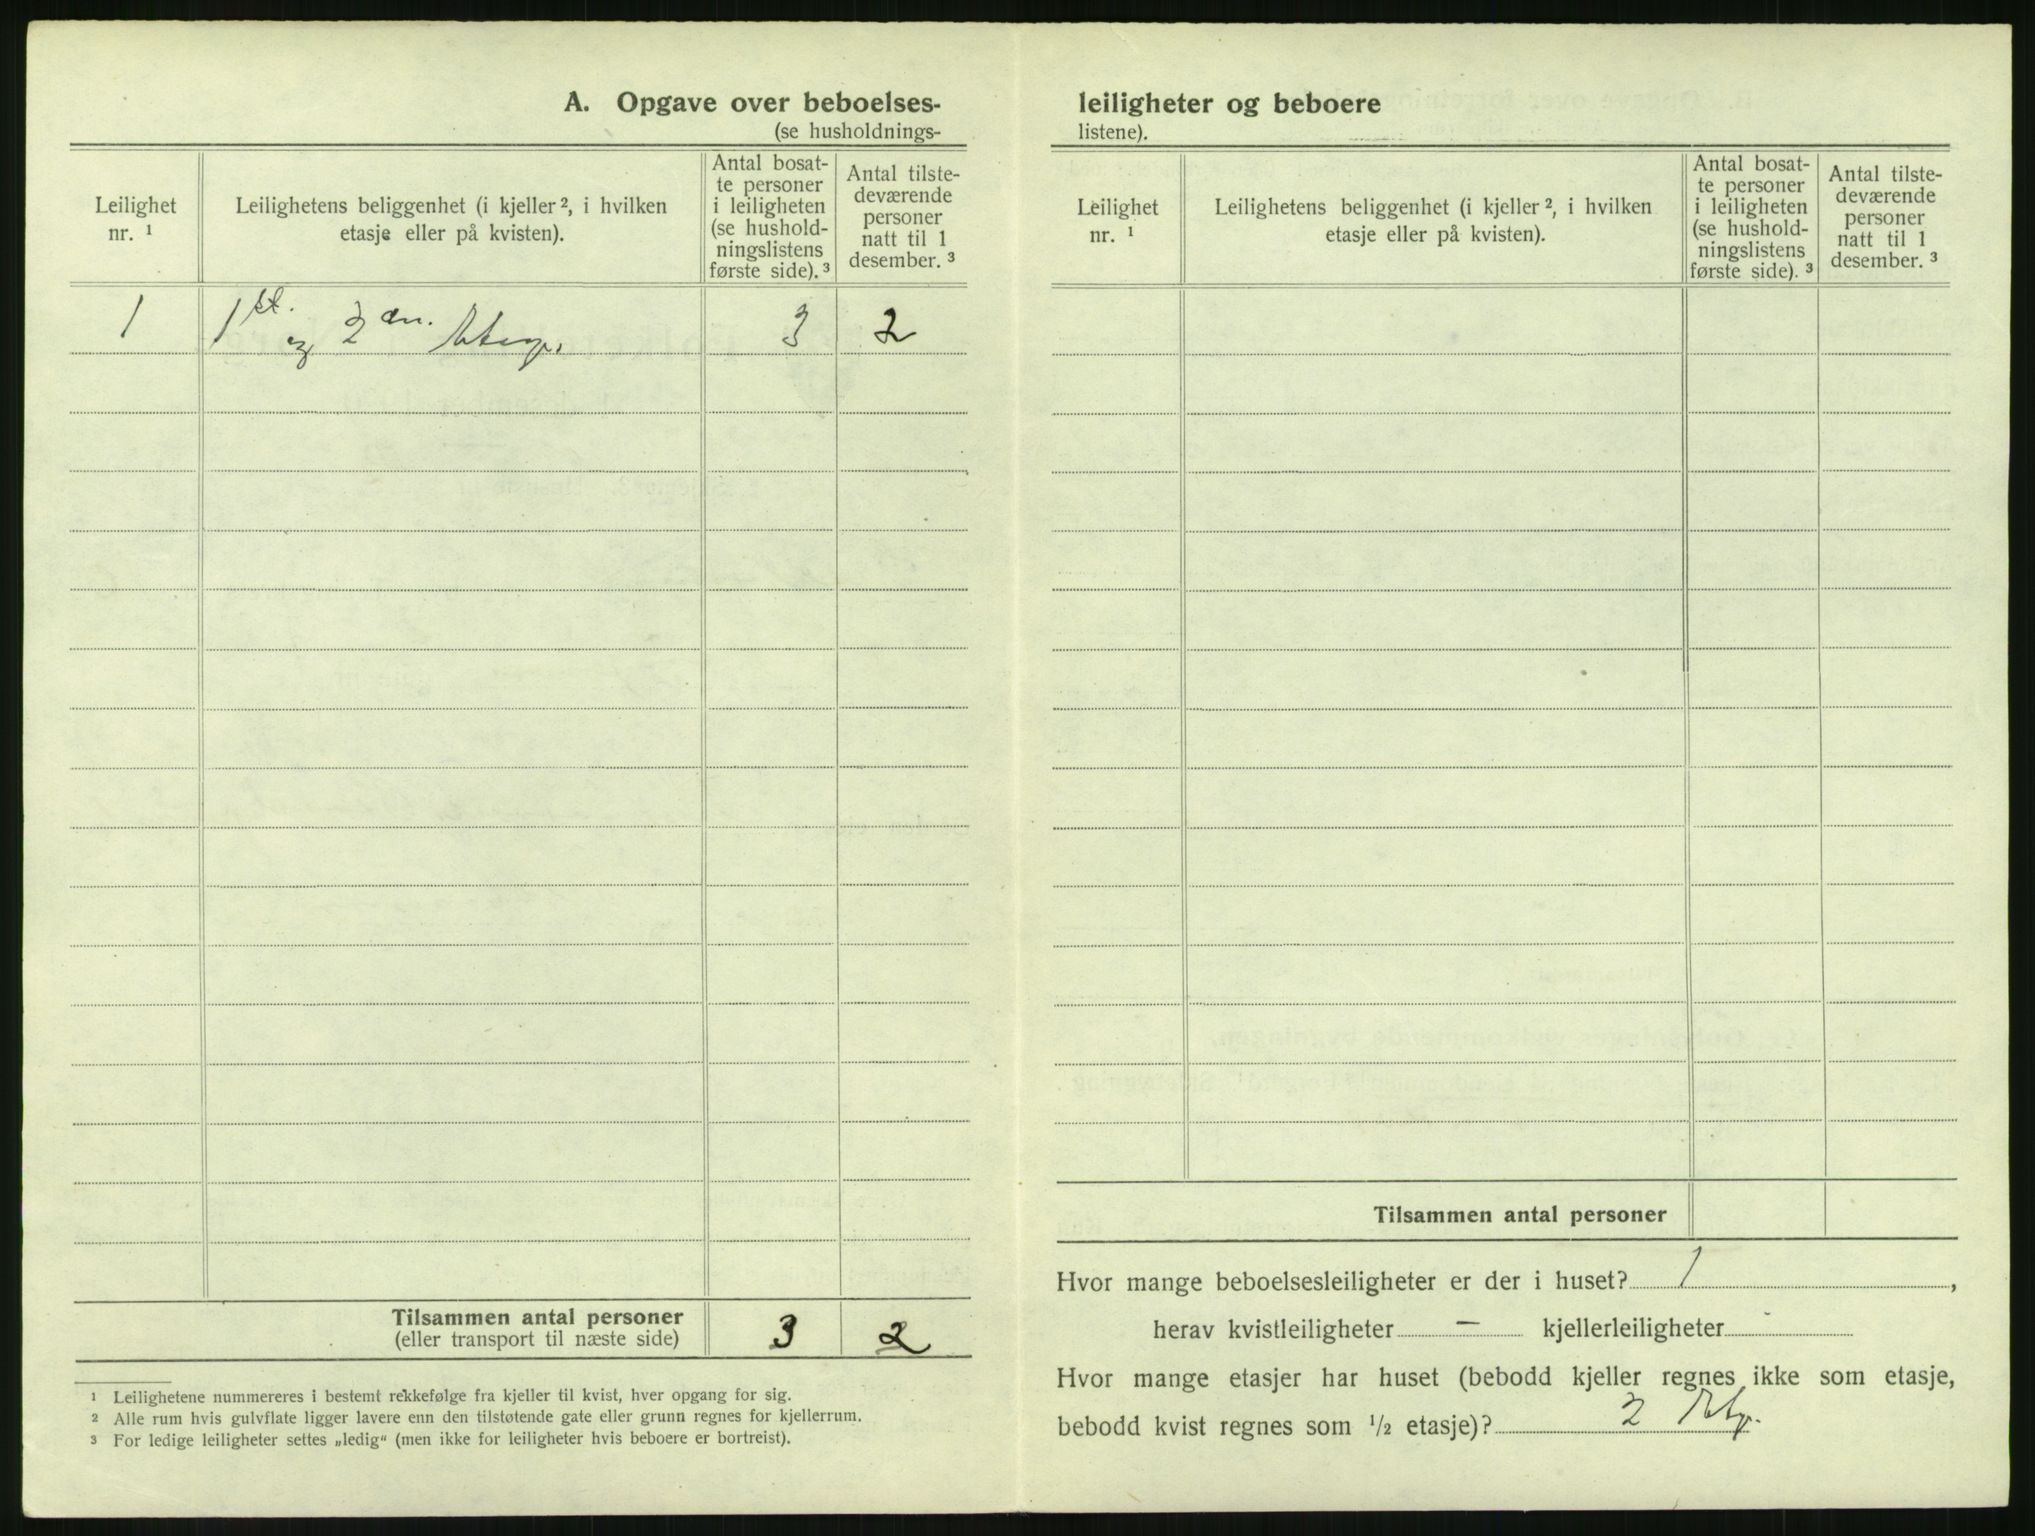 A. Opgave over beboelses-
(se husholdnings-
Leilighet
nr. ¹
Leilighetens beliggenhet (i kjeller ², i hvilken
etasje eller på kvisten).
Antal bosat-
te personer
i leiligheten
(se hushold-
ningslistens
første side). ³
Antal tilste-
deværende
personer
natt til 1
desember. ³
1 1st. og 2den. Etage. 3 2
Tilsammen antal personer 3 2
(eller transport til næste side)
¹ Leilighetene nummereres i bestemt rekkefølge fra kjeller til kvist, hver opgang for sig.
² Alle rum hvis gulvflate ligger lavere enn den tilstøtende gate eller grunn regnes for kjellerrum.
³ For ledige leiligheter settes „ledig“ (men ikke for leiligheter hvis beboere er bortreist).
leiligheter og beboere
listene).
Leilighet
nr. ¹
Leilighetens beliggenhet (i kjeller ², i hvilken
etasje eller på kvisten).
Antal bosat-
te personer
i leiligheten
(se hushold-
ningslistens
første side). ³
Antal tilste-
deværende
personer
natt til 1
desember. ³
Tilsammen antal personer
Hvor mange beboelsesleiligheter er der i huset? 1,
herav kvistleiligheter — kjellerleiligheter
Hvor mange etasjer har huset (bebodd kjeller regnes ikke som etasje,
bebodd kvist regnes som ½ etasje)? 2 Etg.